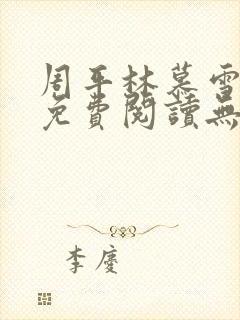 周平林慕雪
免費閱讀無
李慶